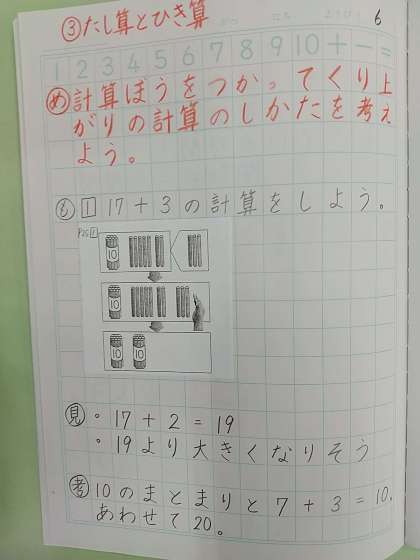 ③たし算とひき算
6
1 2 3 4 5 6 7 8 9 10 + - =
め 計算ぼうをつかって くり上
がりの計算のしかたを考え
よう。
も 1 17+3の計算をしよう。
10
10
10 10
見 ・17+2=19
・19より大きくなりそう
考 10のまとまりと7+3=10。
あわせて20。